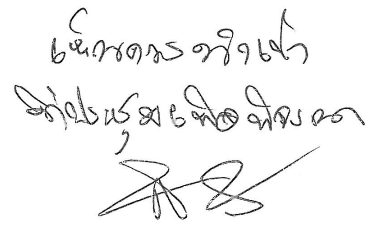 เห็นควรนำเข้า
ที่ประชุมเพื่อพิจารณา